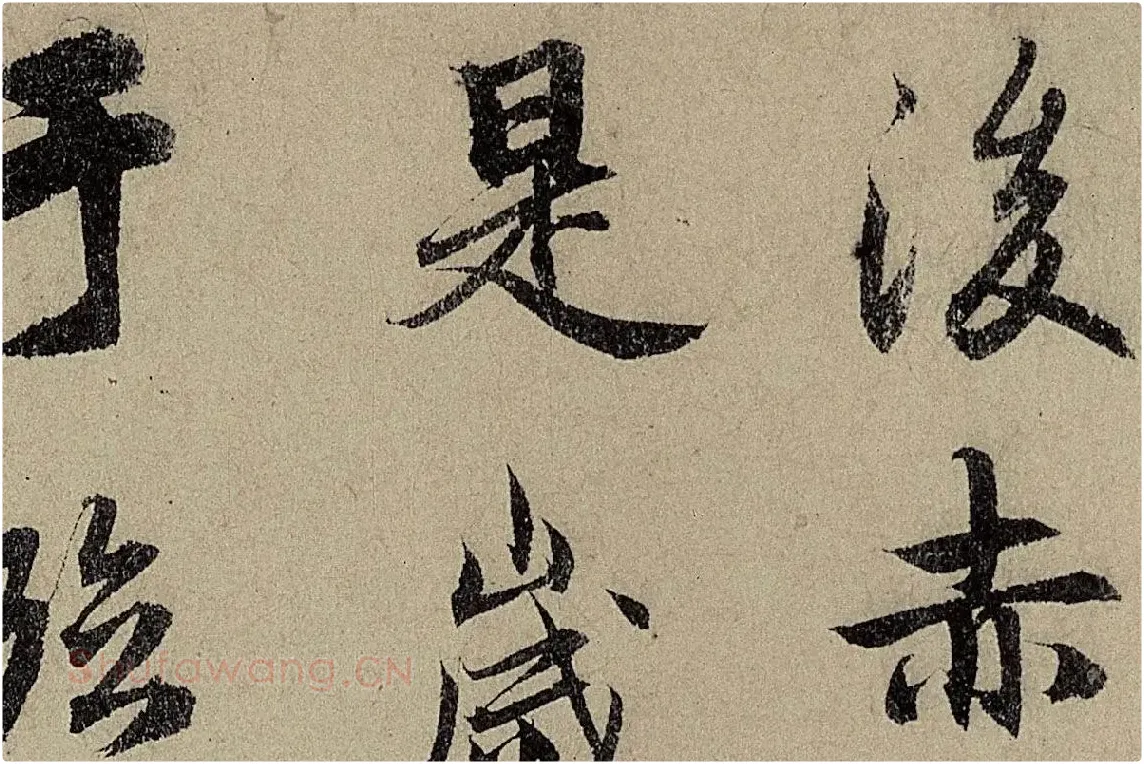 後赤
是歲
于臨
Shufawang.CN